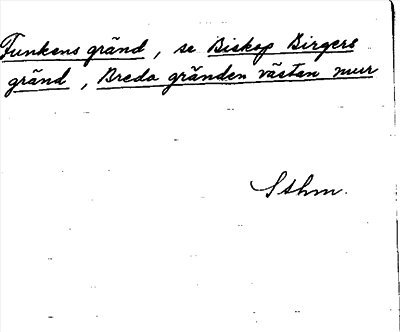 Funkens gränd, se Biskop Birgers
gränd, Breda gränden västan mur
Sthm.